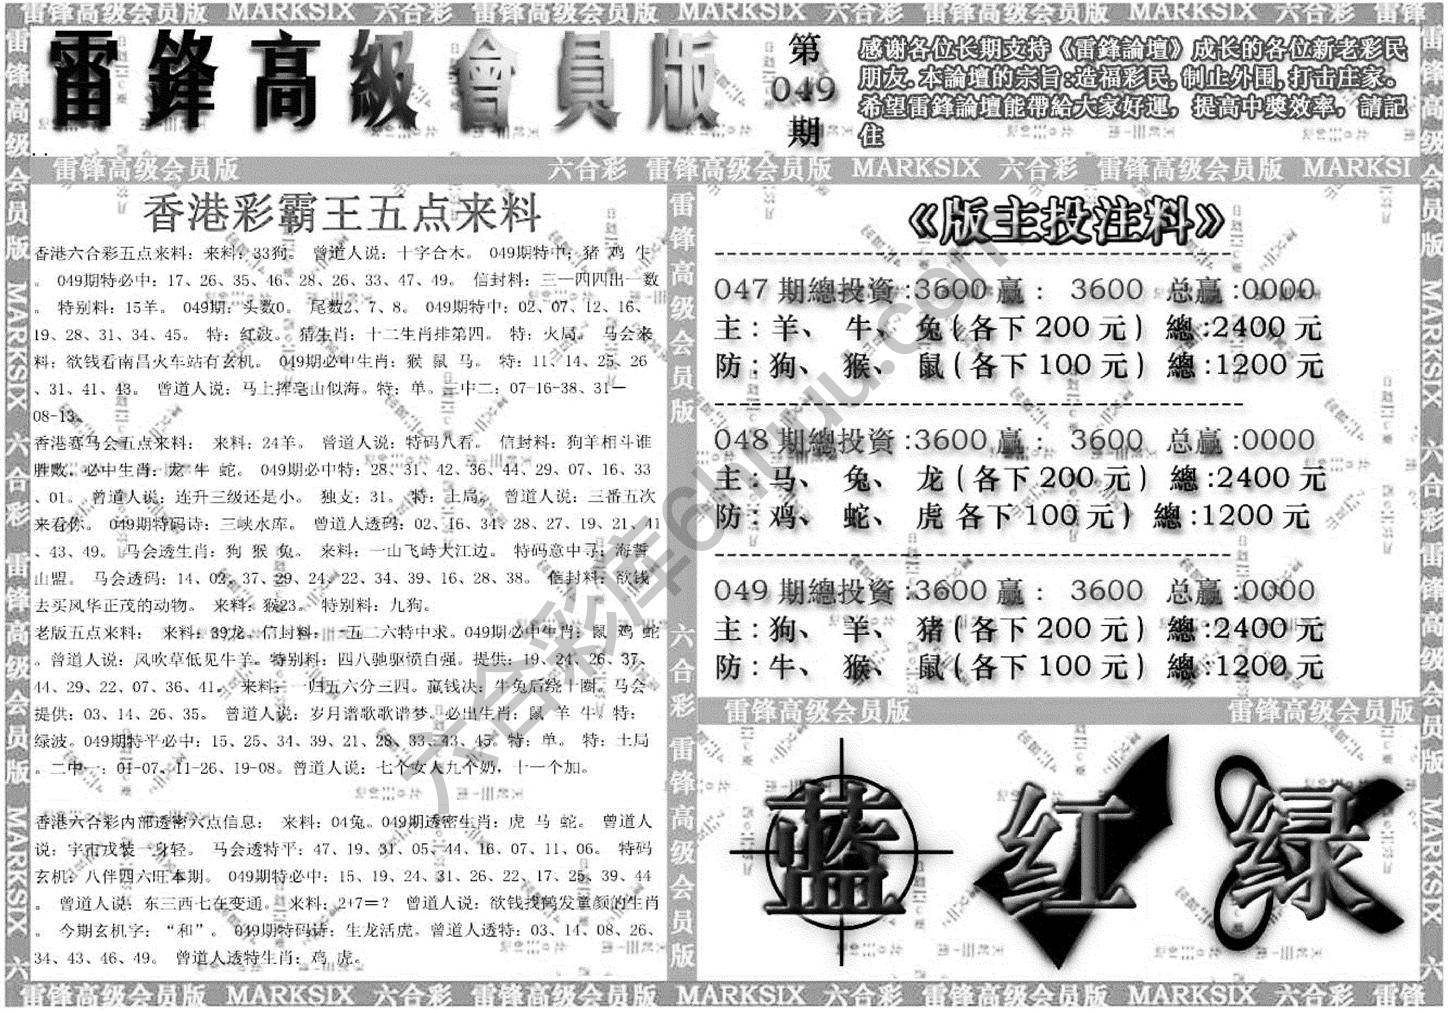 雷锋高级会员版 MARKSIX 六合彩 雷锋高级会员版 MARKSIX 六合彩 雷锋高级会员版 MARKSIX 六合彩 雷锋
雷鋒高級會員版
第
049
期
感谢各位长期支持《雷鋒論壇》成长的各位新老彩民
朋友.本論壇的宗旨:造福彩民,制止外围,打击庄家。
希望雷鋒論壇能帶給大家好運，提高中獎效率，請記
住
雷锋高级会员版 六合彩 雷锋高级会员版 MARKSIX 六合彩 雷锋高级会员版 MARKSI
香港彩霸王五点来料
香港六合彩五点来料：来料：33狗。 曾道人说：十字合木。 049期特中：猪 鸡 牛
。 049期特必中：17、26、35、46、28、26、33、47、49。 信封料：三一四四出一数
。 特别料：15羊。 049期：头数0。 尾数2、7、8。 049期特中：02、07、12、16、
19、28、31、34、45。 特：红波。 猜生肖：十二生肖排第四。 特：火局。 马会来
料：欲钱看南昌火车站有玄机。 049期必中生肖：猴 鼠 马。 特：11、14、25、26
、31、41、43。 曾道人说：马上挥毫山似海。特：单。三中二：07-16-38、31—
08-13。
香港赛马会五点来料： 来料：24羊。 曾道人说：特码八看。 信封料：狗羊相斗谁
胜败。必中生肖：龙 牛 蛇。 049期必中特：28、31、42、36、44、29、07、16、33
、01。 曾道人说：连升三级还是小。 独支：31。 特：土局。 曾道人说：三番五次
来看你。 049期特码诗：三峡水库。 曾道人透码：02、16、34、28、27、19、21、41
、43、49。 马会透生肖：狗 猴 兔。 来料：一山飞峙大江边。 特码意中寻：海誓
山盟。 马会透码：14、02、37、29、24、22、34、39、16、28、38。 信封料：欲钱
去买风华正茂的动物。 来料：猴23。 特别料：九狗。
老版五点来料： 来料：39龙。信封料：一五二六特中求。049期必中生肖：鼠 鸡 蛇
。曾道人说：风吹草低见牛羊。特别料：四八驰驱愤自强。提供：19、24、26、37、
44、29、22、07、36、41。 来料：一归五六分三四。赢钱决：牛兔后绕十圈。马会
提供：03、14、26、35。 曾道人说：岁月谱歌歌谱梦。必出生肖：鼠 羊 牛。特：
绿波。049期特平必中：15、25、34、39、21、28、33、43、45。特：单。 特：土局
。二中一：01-07、11-26、19-08。曾道人说：七个女人九个奶，十一个加。
香港六合彩内部透密六点信息： 来料：04兔。049期透密生肖：虎 马 蛇。 曾道人
说：宇宙戎装一身轻。 马会透特平：47、19、31、05、44、16、07、11、06。 特码
玄机：八伴四六旺本期。 049期特必中：15、19、24、31、26、22、17、25、39、44
。 曾道人说：东三西七在变通。 来料：2+7=？ 曾道人说：欲钱找鹤发童颜的生肖
。 今期玄机字：“和”。 049期特码诗：生龙活虎。曾道人透特：03、14、08、26、
34、43、46、49。 曾道人透特生肖：鸡 虎。
《版主投注料》
047 期總投資:3600 赢： 3600 总赢:0000
主：羊、 牛、 兔(各下 200 元) 總:2400 元
防：狗、 猴、 鼠(各下 100 元) 總:1200 元
048 期總投資:3600 赢： 3600 总赢:0000
主：马、 兔、 龙(各下 200 元) 總:2400 元
防：鸡、 蛇、 虎 各下 100 元) 總:1200 元
049 期總投資:3600 赢： 3600 总赢:0000
主：狗、 羊、 猪(各下 200 元) 總:2400 元
防：牛、 猴、 鼠(各下 100 元) 總:1200 元
雷锋高级会员版 雷锋高级会员版
蓝 红 绿
雷锋高级会员版 MARKSIX 六合彩 雷锋高级会员版 MARKSIX 六合彩 雷锋高级会员版 MARKSIX 六合彩 雷锋
雷锋高级会员版 MARKSIX 六合彩 雷锋高级会员版 MARKSIX 六
雷锋高级会员版 六合彩 雷锋高级会员版
雷锋高级会员版 MARKSIX 六合彩 雷锋高级会员版 MARKSIX 六